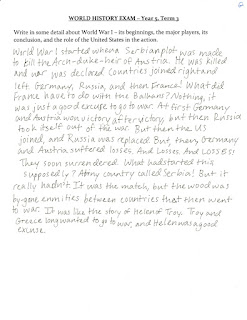 WORLD HISTORY EXAM – Year 9, Term 3
Write in some detail about World War I – its beginnings, the major players, its
conclusion, and the role of the United States in the action.
World War I started when a Serbian plot was made
to kill the Arch-duke-heir of Austria. He was killed
and war was declared. Countries joined right and
left. Germany, Russia, and then France! What did
France have to do with the Balkans? Nothing, it
was just a good excuse to go to war. At first Germany
and Austria won victory after victory, but then Russia
took itself out of the war. But then the US
joined, and Russia was replaced. But then, Germany
and Austria suffered losses. And Losses. And LOSSES!
They soon surrendered. What had started this
supposedly? A tiny country called Serbia! But it
really hadn't. It was the match, but the wood was
by-gone enmities between countries that then went
to war. It was like the story of Helen of Troy. Troy and
Greece long wanted to go to war, and Helen was a good
excuse.